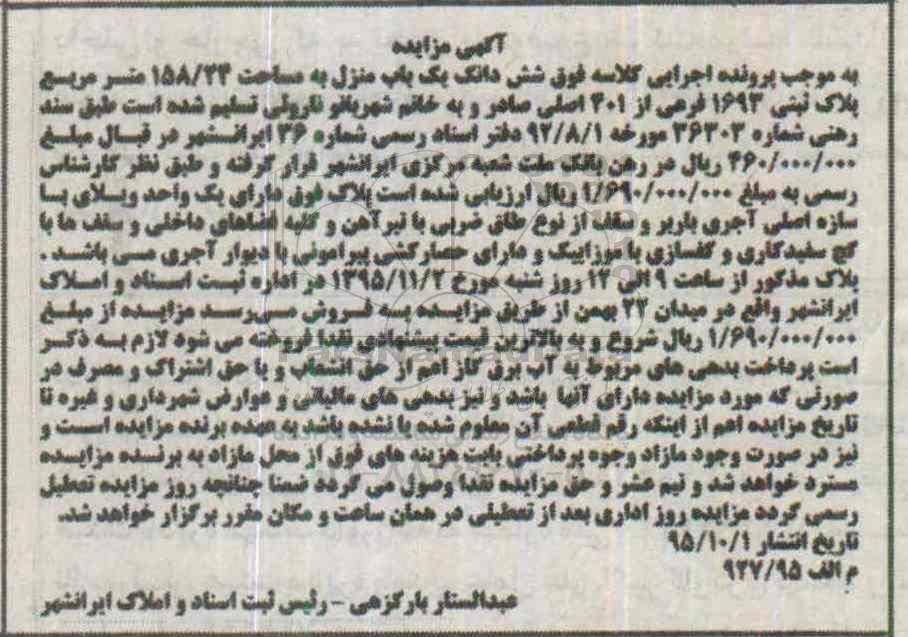 آگهی مزایده
به موجب پرونده اجرایی کلاسه فوق شش دانگ یک باب منزل به مساحت ۱۵۸/۲۴ متر مربع
پلاک ثبتی ۱۶۹۳ فرعی از ۳۰۱ اصلی صادر و به خانم شهربانو نارونی تسلیم شده است طبق سند
رهنی شماره ۳۶۳۰۳ مورخه ۹۲/۸/۱ دفتر اسناد رسمی شماره ۳۶ ایرانشهر در قبال مبلغ
۴۶۰/۰۰۰/۰۰۰ ریال در رهن بانک ملت شعبه مرکزی ایرانشهر قرار گرفته و طبق نظر کارشناس
رسمی به مبلغ ۱/۶۹۰/۰۰۰/۰۰۰ ریال ارزیابی شده است پلاک فوق دارای یک واحد ویلای با
سازه اصلی آجری باربر و سقف از نوع طاق ضربی با تیرآهن و کلیه فضاهای داخلی و سقف ها با
گچ سفیدکاری و کفسازی با موزاییک و دارای حصارکشی پیرامونی با دیوار آجری می باشد .
پلاک مذکور از ساعت ۹ الی ۱۲ روز شنبه مورخ ۱۳۹۵/۱۱/۲ در اداره ثبت اسناد و املاک
ایرانشهر واقع در میدان ۲۲ بهمن از طریق مزایده به فروش می‌رسد مزایده از مبلغ
۱/۶۹۰/۰۰۰/۰۰۰ ریال شروع و به بالاترین قیمت پیشنهادی نقدا فروخته می شود لازم به ذکر
است پرداخت بدهی های مربوط به آب برق گاز اعم از حق انشعاب و یا حق اشتراک و مصرف در
صورتی که مورد مزایده دارای آنها باشد و نیز بدهی های مالیاتی و عوارض شهرداری و غیره تا
تاریخ مزایده اعم از اینکه رقم قطعی آن معلوم شده یا نشده باشد به عهده برنده مزایده است و
نیز در صورت وجود مازاد وجوه پرداختی بابت هزینه های فوق از محل مازاد به برنده مزایده
مسترد خواهد شد و نیم عشر و حق مزایده نقدا وصول می گردد ضمنا چنانچه روز مزایده تعطیل
رسمی گردد مزایده روز اداری بعد از تعطیلی در همان ساعت و مکان مقرر برگزار خواهد شد.
تاریخ انتشار ۹۵/۱۰/۱
م الف ۹۲۷/۹۵
عبدالستار بارکزهی - رئیس ثبت اسناد و املاک ایرانشهر